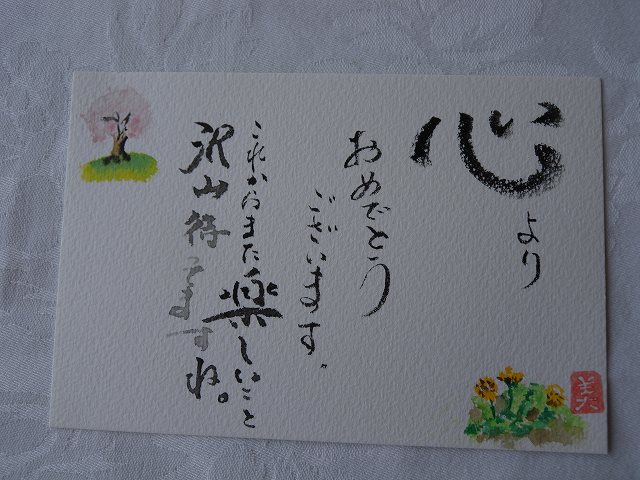 心より
おめでとう
ございます。
これからまた楽しいこと
沢山待ってますね。